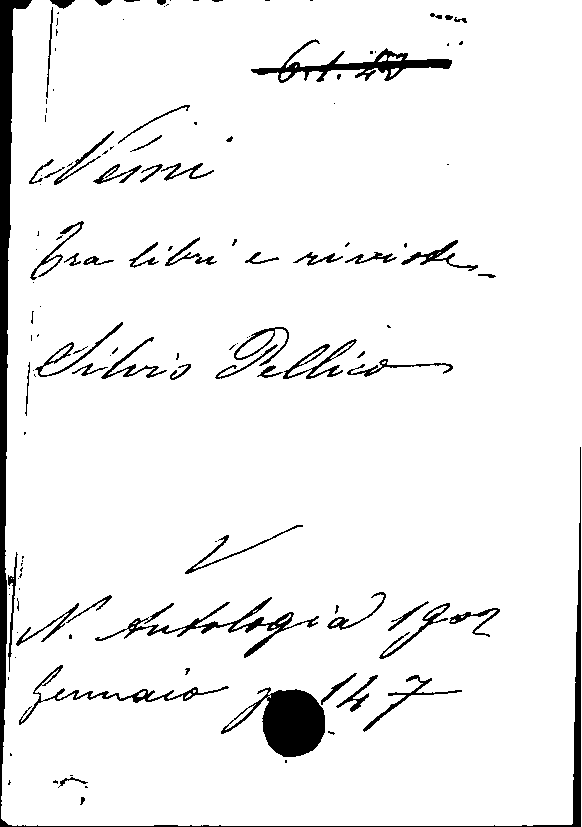 Nemi
Tra libri e riviste
Silvio Pellico
V
N. Antologia 1902
Gennaio p. 147